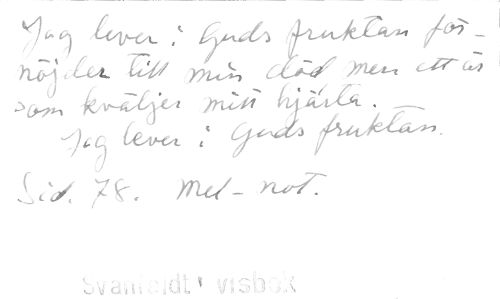 Jag lever i Guds fruktan för-
nöjder till min död men ett är
som kväljer mitt hjärta.
Jag lever i Guds fruktan.
Sid. 78. Mel-not.
visbok